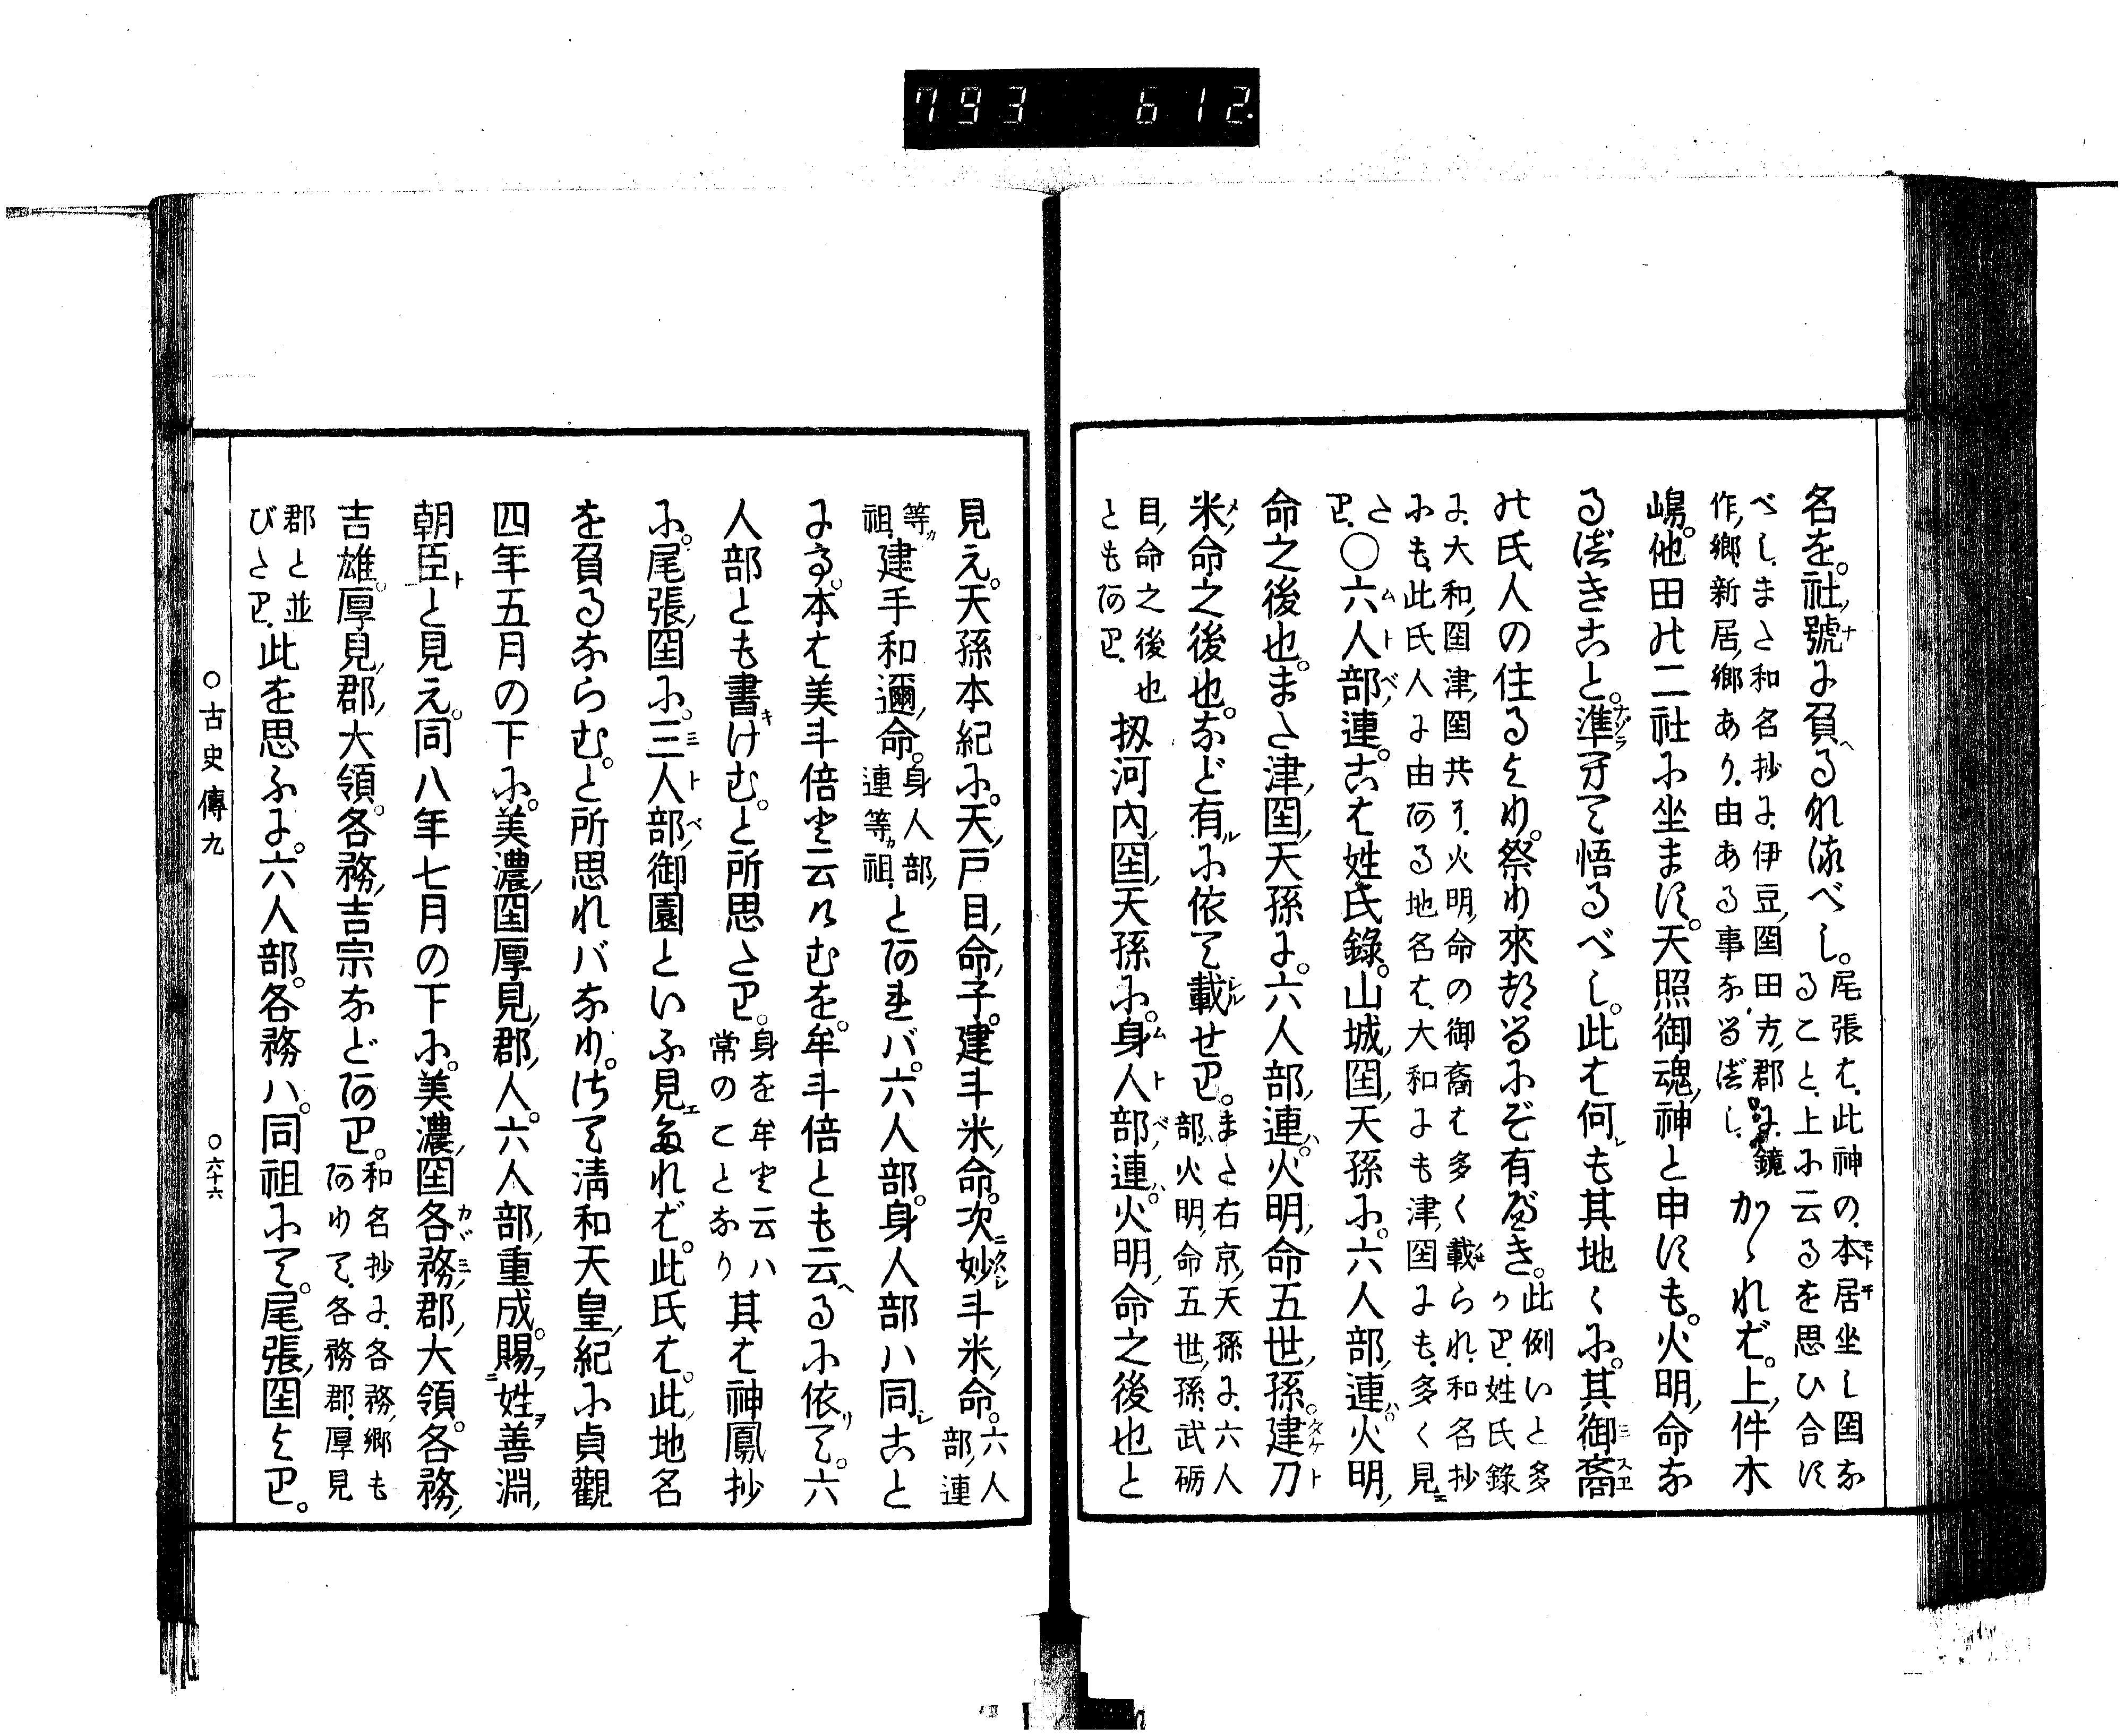 793 612.
名を。社號に負るなるべし。尾張は、此神の、本居坐し国なることと、上に云るを思ひ合す
べし、また和名抄に、伊豆国田方郡に、鏡作郷、新居郷あり、由ある事なるべし、かゝれば。上件木
嶋。他田の二社に坐ます。天照御魂神と申すも。火明命な
るべきこと。準へて悟るべし。此は何も其地々に。其御裔
の氏人の住るより。祭り來れるにぞ有べき。此例いと多かり、姓氏錄
に、大和国津国共に、火明命の御裔は多く載られ、和名抄にも、此氏人に由ある地名は、大和にも津国にも、多く見え
たり、〇六人部連。こは姓氏錄。山城国天孫に。六人部連。火明
命之後也。また津国天孫に。六人部連。火明命五世孫。建刀
米命之後也。など有に依て載せり。また右京天孫に、六人部、火明命五世孫、武砺
目命之後也ともあり、扨河內国天孫に。身人部連。火明命之後也と
見え。天孫本紀に。天戸目命子。建斗米命。次妙斗米命。六人部連
等祖、建手和邇命。身人部連等祖、とあれバ。六人部。身人部ハ同こと
にて。本は美斗倍と云けむを。牟斗倍とも云へるに依て。六
人部とも書けむ。と所思たり。身を牟と云ハ常のことなり其は神鳳抄
に。尾張国に。三人部御園といふ見えたれば。此氏は。此地名
を負るならむ。と所思れバなり。さて淸和天皇紀に貞觀
四年五月の下に。美濃国厚見郡人。六人部重成。賜姓善淵
朝臣と見え。同八年七月の下に。美濃国各務郡大領。各務
吉雄。厚見郡大領。各務吉宗などあり。和名抄に、各務郷もありて、各務郡、厚見
郡と並びたり、此を思ふに。六人部。各務ハ。同祖にて。尾張国より。
〇古史傳九 〇六十六